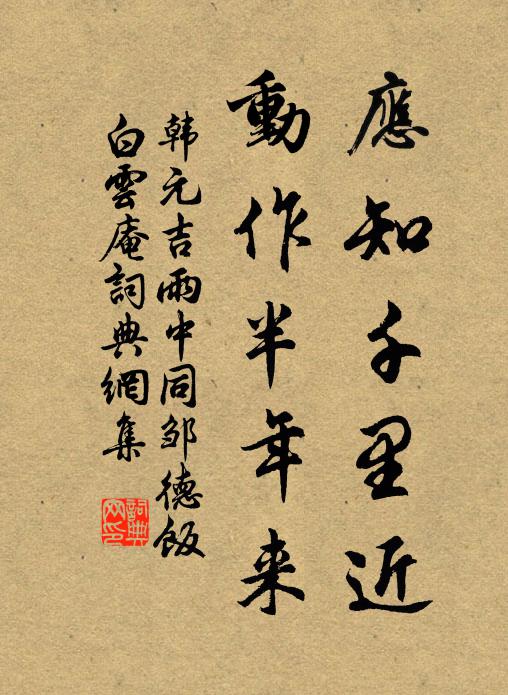 應知千里近
動作半年来
韩元吉雨中同邹德飯
白雲庵詞典網集
詞典网印